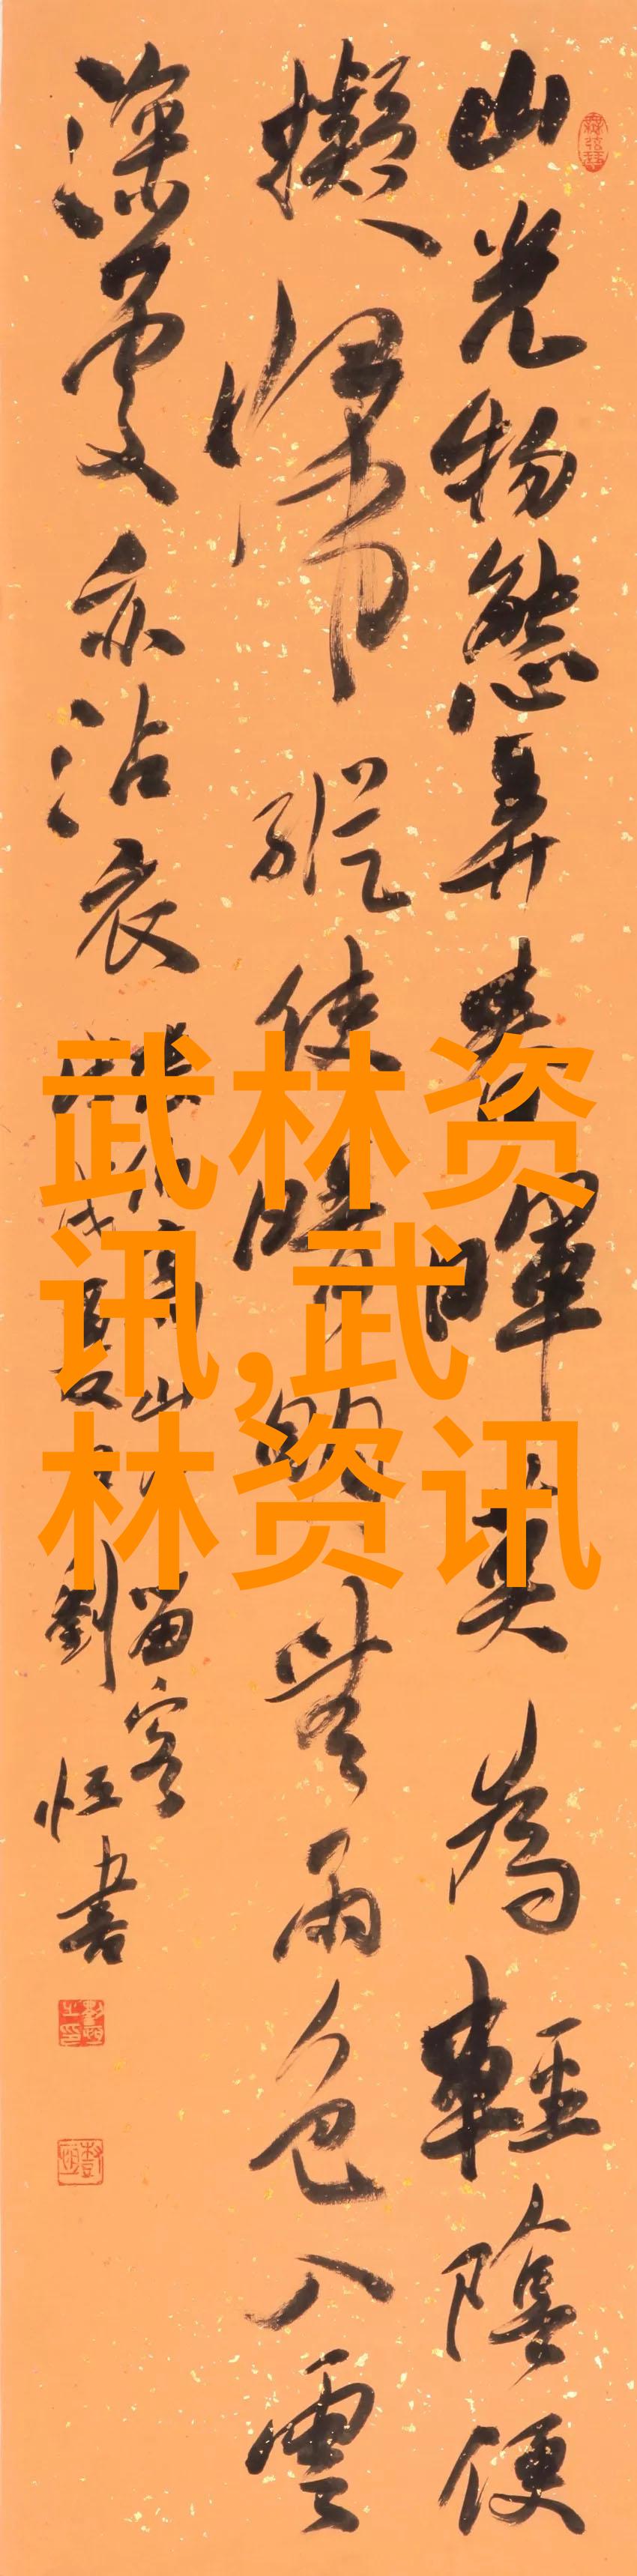 山光物態弄春暉莫為輕陰便
擬歸縱使晴明無雨色入雲
深處亦沾衣
山 留客
夏 劉恒書
武林资
讯,武
林资讯